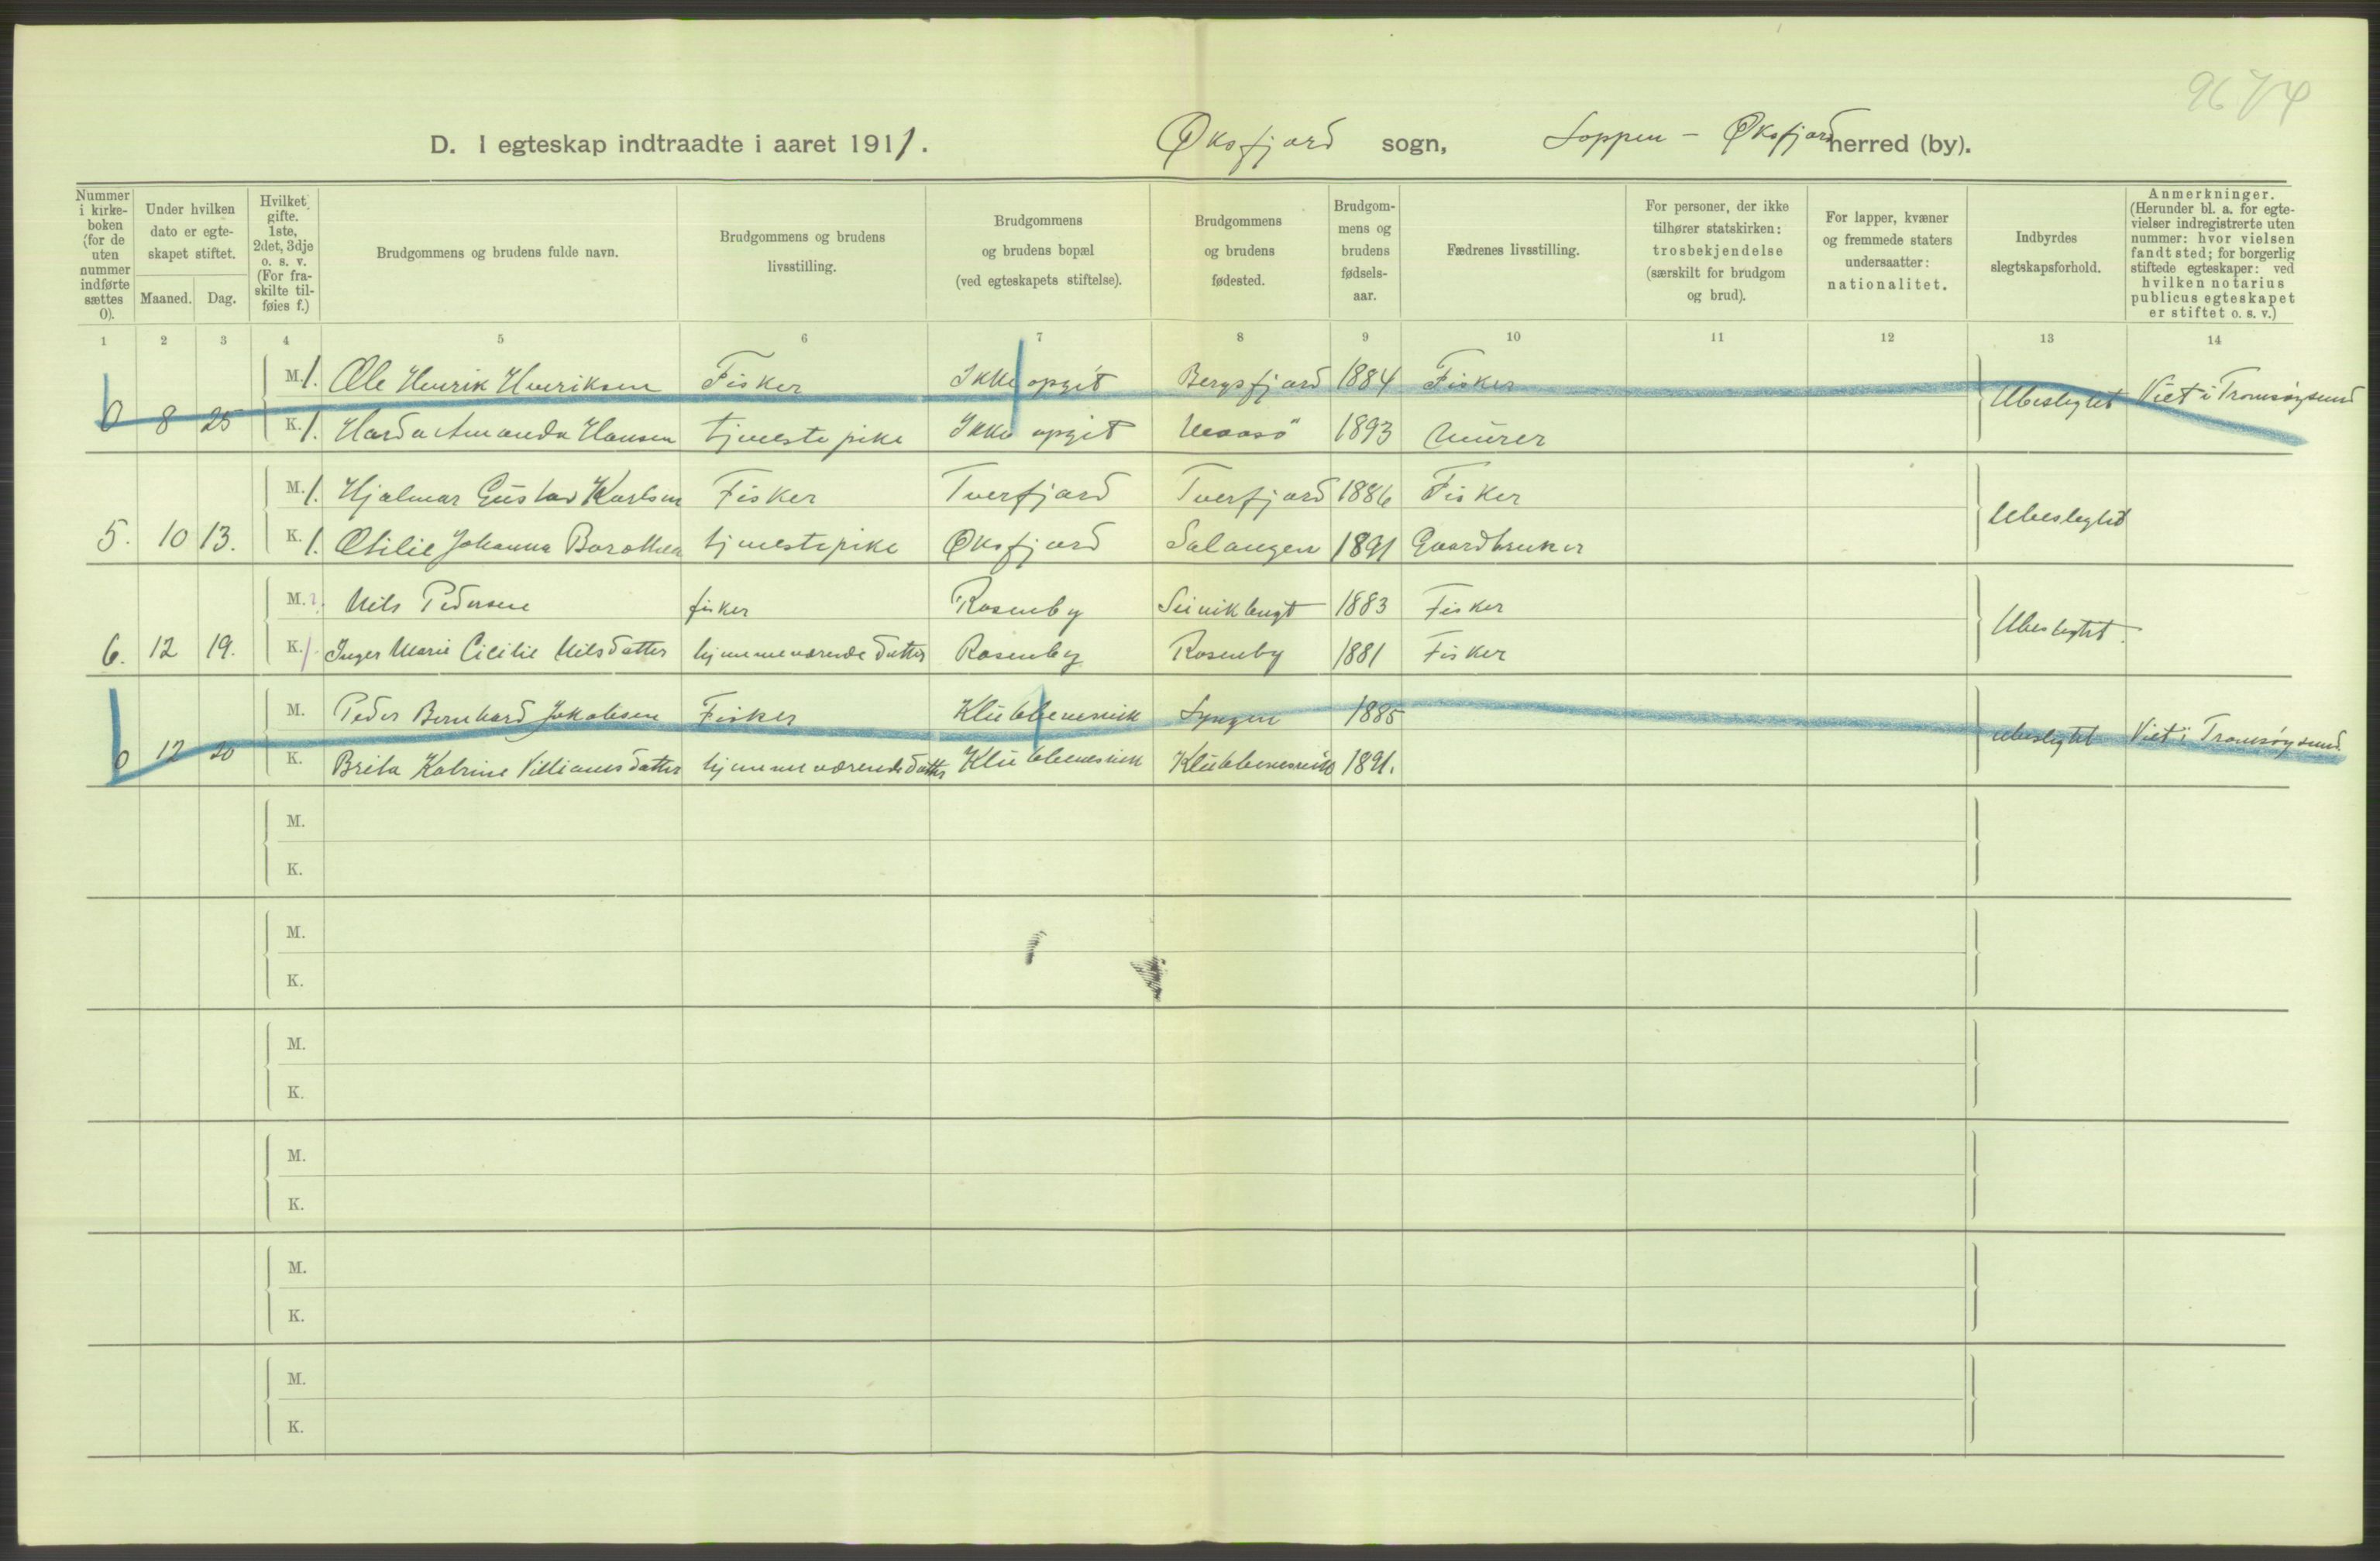 9674
D. I egteskap indtraadte i aaret 1911. Øksfjord sogn, Loppen - Øksfjord herred (by).
Nummer i kirke-boken (for de uten nummer indførte sættes 0).
Under hvilken dato er egte-skapet stiftet.
Maaned. Dag.
Hvilket gifte. 1ste, 2det, 3dje o. s. v. (For fra-skilte til-føies f.)
Brudgommens og brudens fulde navn.
Brudgommens og brudens livsstilling.
Brudgommens og brudens bopæl (ved egteskapets stiftelse).
Brudgommens og brudens fødested.
Brudgom-mens og brudens fødsels-aar.
Fædrenes livsstilling.
For personer, der ikke tilhører statskirken: trosbekjendelse (særskilt for brudgom og brud).
For lapper, kvæner og fremmede staters undersaatter: nationalitet.
Indbyrdes slegtskapsforhold.
Anmerkninger. (Herunder bl. a. for egte-vielser indregistrerte uten nummer: hvor vielsen fandt sted; for borgerlig stiftede egteskaper: ved hvilken notarius publicus egteskapet er stiftet o. s. v.)
1 2 3 4 5 6 7 8 9 10 11 12 13 14
M. 1. Ole Henrik Henriksen Fisker Ikke opgit Bergsfjord 1884 Fisker
0 8 25 K. 1. Harda Amanda Hansen tjenestepike Ikke opgit Maasø 1893 Murer Ubeslegtet Viet i Tromsøysund
M. 1. Hjalmar Gustav Karlsen Fisker Tverfjord Tverfjord 1886 Fisker
5. 10 13. K. 1. Otilie Johanna tjenestepike Øksfjord Salangen 1891 Gaardbruker Ubeslegtet
M. Nils Pedersen fisker Rosenby 1883 Fisker
6. 12 19. K. 1. Inger Marie Cicilie Nilsdatter hjemmeværende datter Rosenby Rosenby 1881 Fisker Ubeslegtet.
M. Peder Bernhard Jakobsen Fisker Klubbenesvik Lyngen 1885
0 12 20 K. Brita Katrine Villiamsdatter hjemmeværende datter Klubbenesvik Klubbenesvik 1891. Ubeslegtet Viet i Tromsøysund
M.
K.
M.
K.
M.
K.
M.
K.
M.
K.
M.
K.